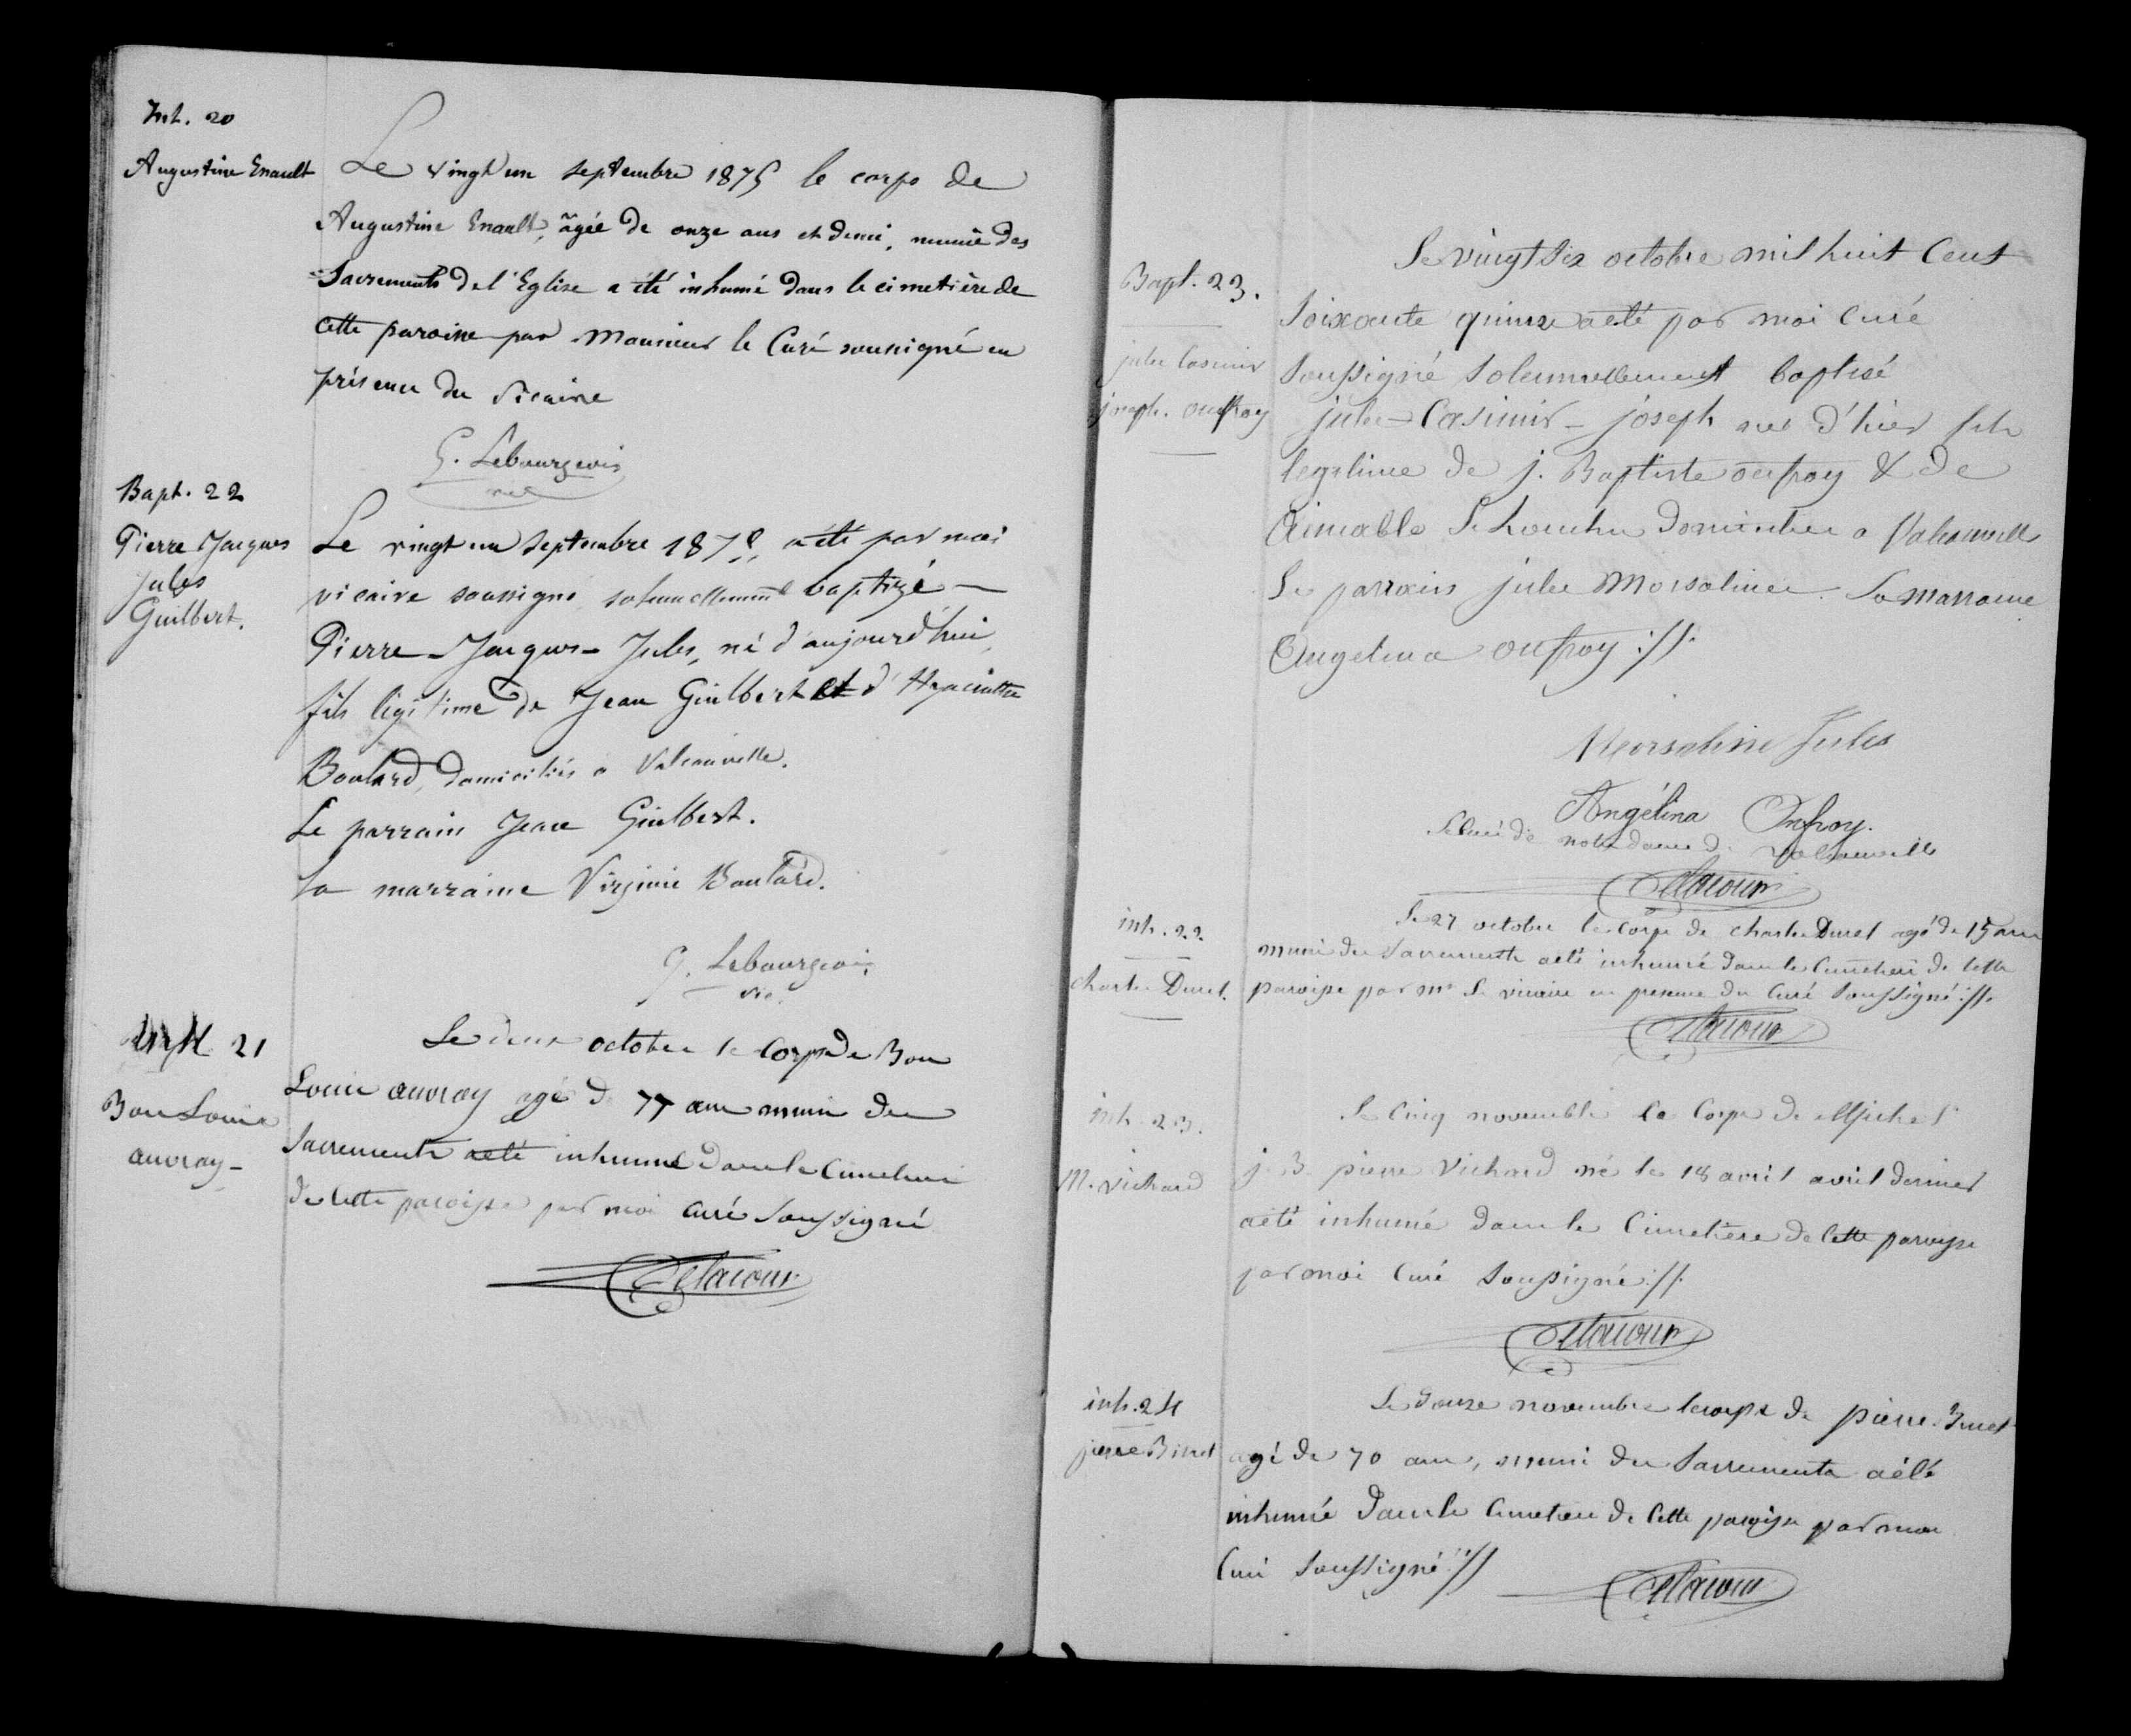 Inh. 20
Augustine Enault
Le vingt un septembre 1875 le corps de
Augustine Enault, âgée de onze ans et demi, munie des
Sacrements de l'Eglise a été inhumé dans le cimetière de
cette paroisse par Monsieur le Curé soussigné en
présence du Vicaire
G. Lebourgeois
vic
Bapt. 22
Pierre Jacques
Jules
Guilbert.
Le vingt un Septembre 1875, a été par moi
vicaire soussigné solennellement baptizé —
Pierre - Jacques - Jules, né d'aujourd'hui,
fils légitime de Jean Guilbert et d'Hyacinthe
Boulard, domiciliés a Valcanville.
Le parrain Jean Guilbert.
la marraine Virginie Boulard.
G. Lebourgeois
vic.
Inh 21
Bon Louis
auvray -
Le deux octobre le corps de Bon
Louis auvray agé de 77 ans muni des
Sacrements a été inhumé dans le Cimetiere
de cette paroisse par moi curé soussigné
Delacour
Bapt. 23.
jules Casimir
joseph. onfroy
Le vingt six octobre mil huit cent
soixante quinze a été par moi curé
soussigné solennellement baptisé
jules - Casimir - joseph né d'hier fils
legitime de j. Baptiste onfroy & de
Aimable Lehouchu domiciliés a Valcanville
Le parrain jules Morsaline. La marraine
Angelina onfroy ://.
Morsaline Jules
Angélina Onfroy.
Le curé de notre dame de Valcanville
Delacour
inh. 22
charles Duret.
Le 27 octobre le corps de charles Duret agé de 15 ans
muni des Sacrements a été inhumé dans le Cimetiere de cette
paroisse par mr le vicaire en presence du Curé soussigné ://.
Delacour
inh. 23.
M. Vichard
Le cinq novembre le Corps de Michel
j. B. pierre Vichard né le 18 avril avril dernier
a été inhumé dans le Cimetière de cette paroisse
par moi Curé soussigné ://.
Delacour
inh. 24
pierre Binet
Le douze novembre le corps de pierre Binet
agé de 70 ans, muni des Sacrements a été
inhumé dans le Cimetiere de cette paroisse par moi
Curé soussigné ://
Delacour